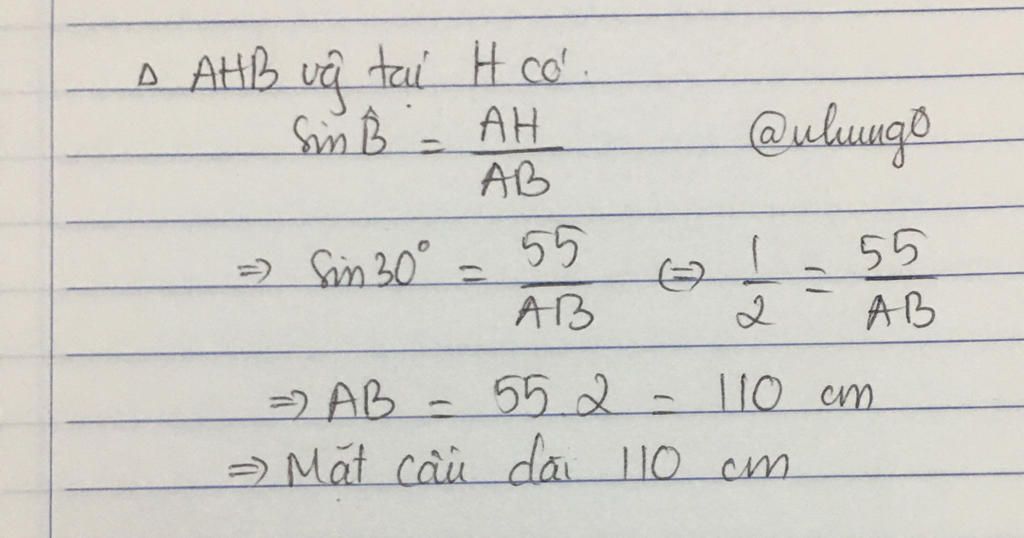 Δ AHB vg̃ tại H có.
Sin B̂ = AH/AB @uhung0
=> Sin 30° = 55/AB <=> 1/2 = 55/AB
=> AB = 55.2 = 110 cm
=> Mặt cầu dài 110 cm